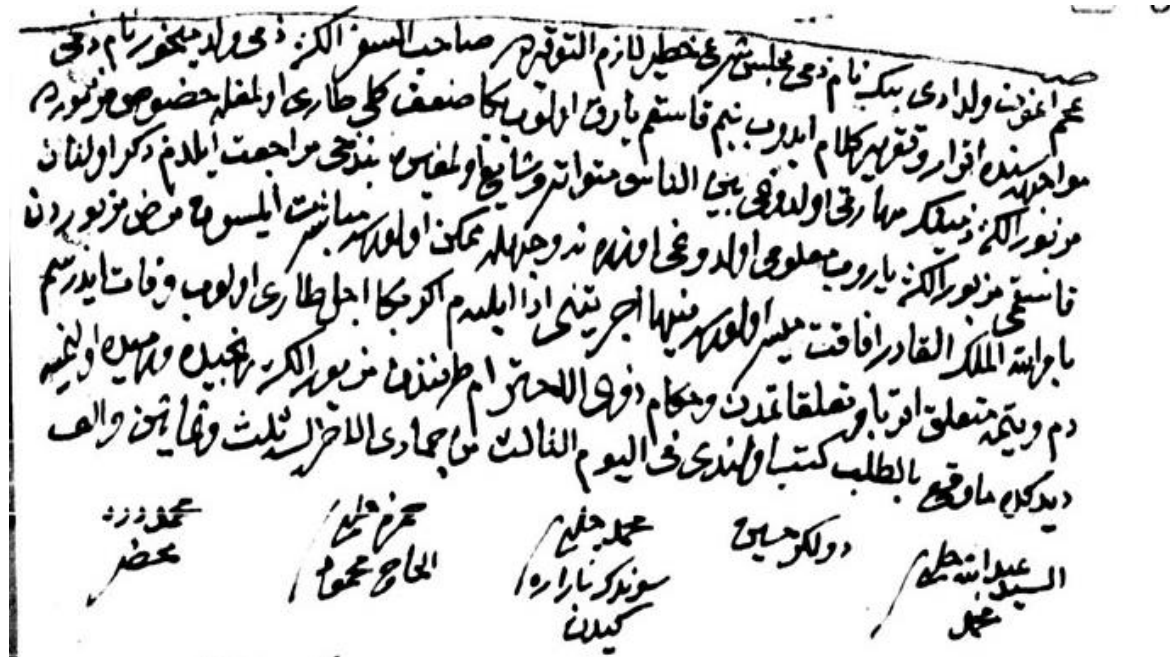 عجم اغوب ولد ادى بك نام ذمى مجلس شرع خطير لازم التوقيرده صاحب السفر الكز ذمى ولد نام ذمى
مواجهه سنده اقرار وتقرير كلام ايدوب بنم قاسقم ياروق اولوب بكا ضعف كلى طارى اولمغله خصوص مزبوره
مزبور الكز ذمينك مهارتى اولدوغى بين الناس متواتر وشايع اولمغين بندخى مراجعت ايلدم ذكر اولنان
قاسقمى مزبور الكز ياروب معلومى اولدوغى اوزره نه وجهله ممكن اولورسه مباشرت ايلسون مرض مزبوردن
بامر الله الملك القادر افاقت ميسر اولورسه فبها اجريتنى ادا ايليه م اكر بكا اجل طارى اولوب وفات ايدرسم
دم وديتمه متعلق اقربا وتعلقاتمدن وحكام ذوى الاحترام طرفندن مزبور الكز رنجيده ورميده اولنميه
ديدكده ما وقع بالطلب كتب اولندى فى اليوم الثالث من جمادى الاخر لسنه ثلث وثمانين والف
السيد عبد الله چلبى محمد
دولكر حسين
محمد چلبى كيدن
حمزه چلبى الحاج محمود
محمد دده محضر